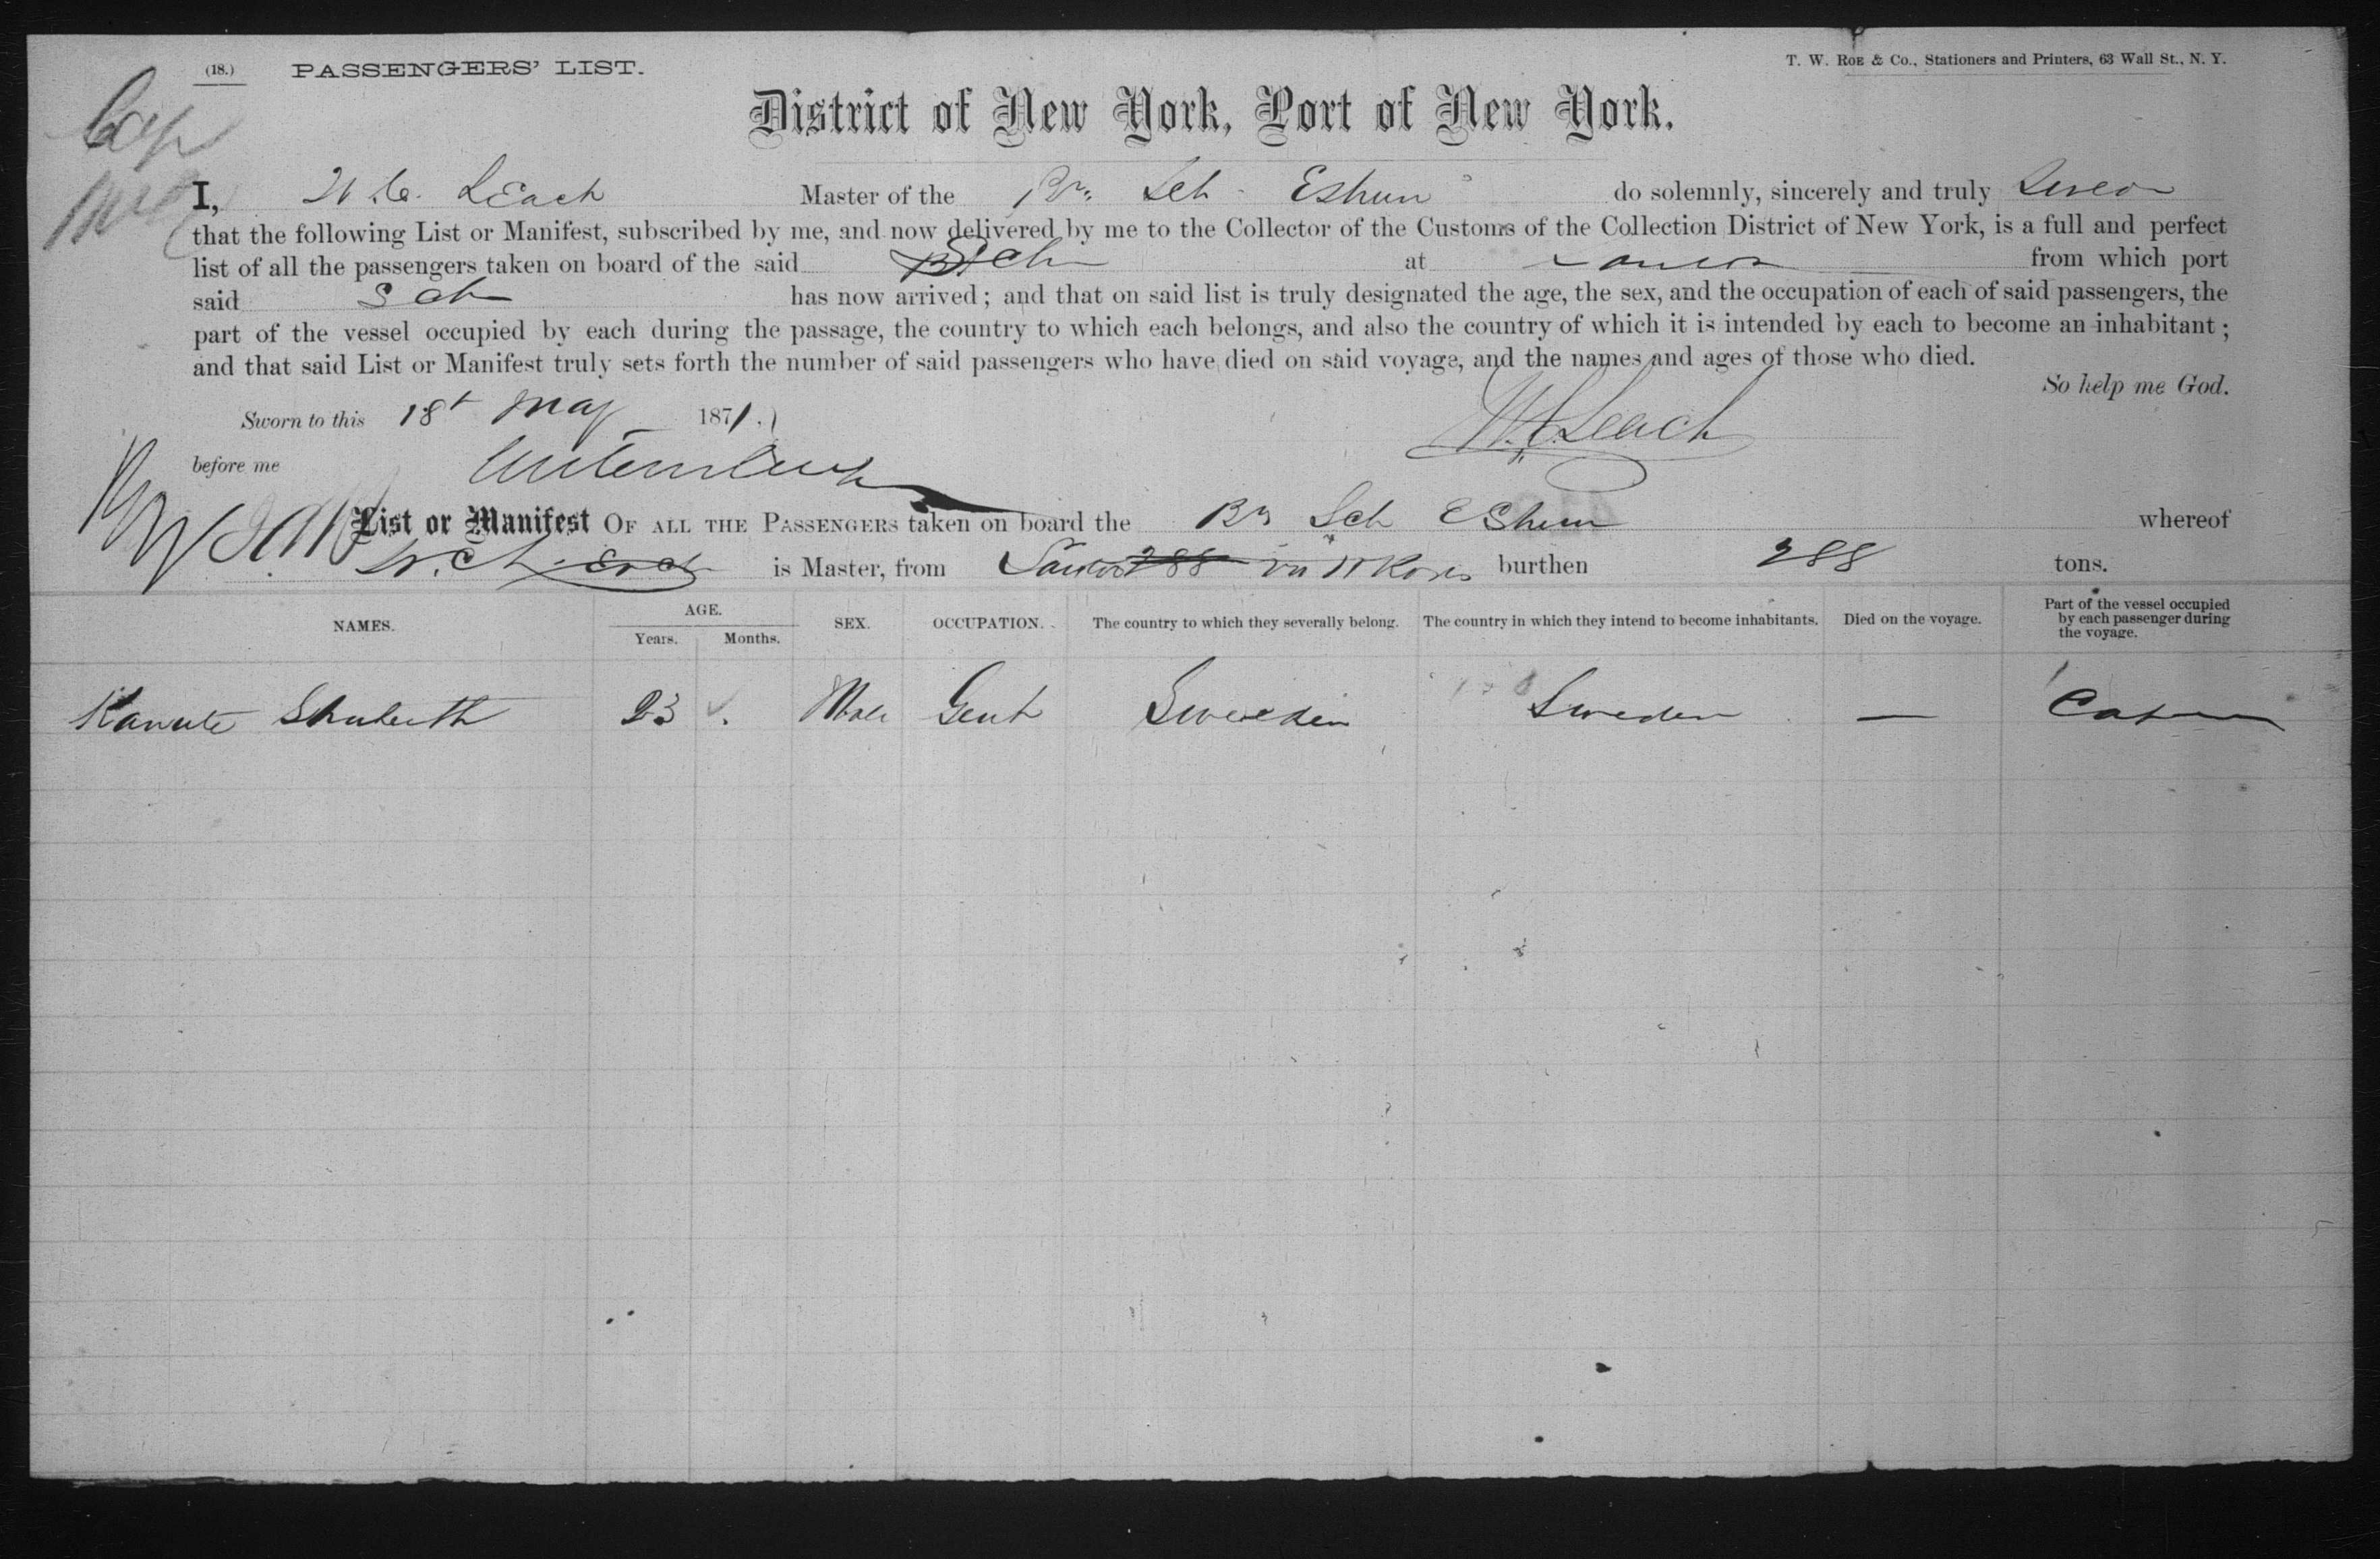 (18.) PASSENGERS' LIST.
T. W. ROE & Co., Stationers and Printers, 63 Wall St., N. Y.
District of New York, Port of New York.
I, W. C. LEach Master of the Br. Sch Eshun do solemnly, sincerely and truly Swear
that the following List or Manifest, subscribed by me, and now delivered by me to the Collector of the Customs of the Collection District of New York, is a full and perfect
list of all the passengers taken on board of the said Sch at from which port
said Sch has now arrived; and that on said list is truly designated the age, the sex, and the occupation of each of said passengers, the
part of the vessel occupied by each during the passage, the country to which each belongs, and also the country of which it is intended by each to become an inhabitant;
and that said List or Manifest truly sets forth the number of said passengers who have died on said voyage, and the names and ages of those who died.
So help me God.
Sworn to this 18t May 1871.
W. C. Leach
before me
List or Manifest OF ALL THE PASSENGERS taken on board the Br Sch Eshun whereof
W. C. Leach is Master, from 288 burthen 288 tons.
NAMES. AGE. Years. Months. SEX. OCCUPATION. The country to which they severally belong. The country in which they intend to become inhabitants. Died on the voyage. Part of the vessel occupied by each passenger during the voyage.
Kanute Shuberth 23 Male Gent Sweden Sweden — Cabin